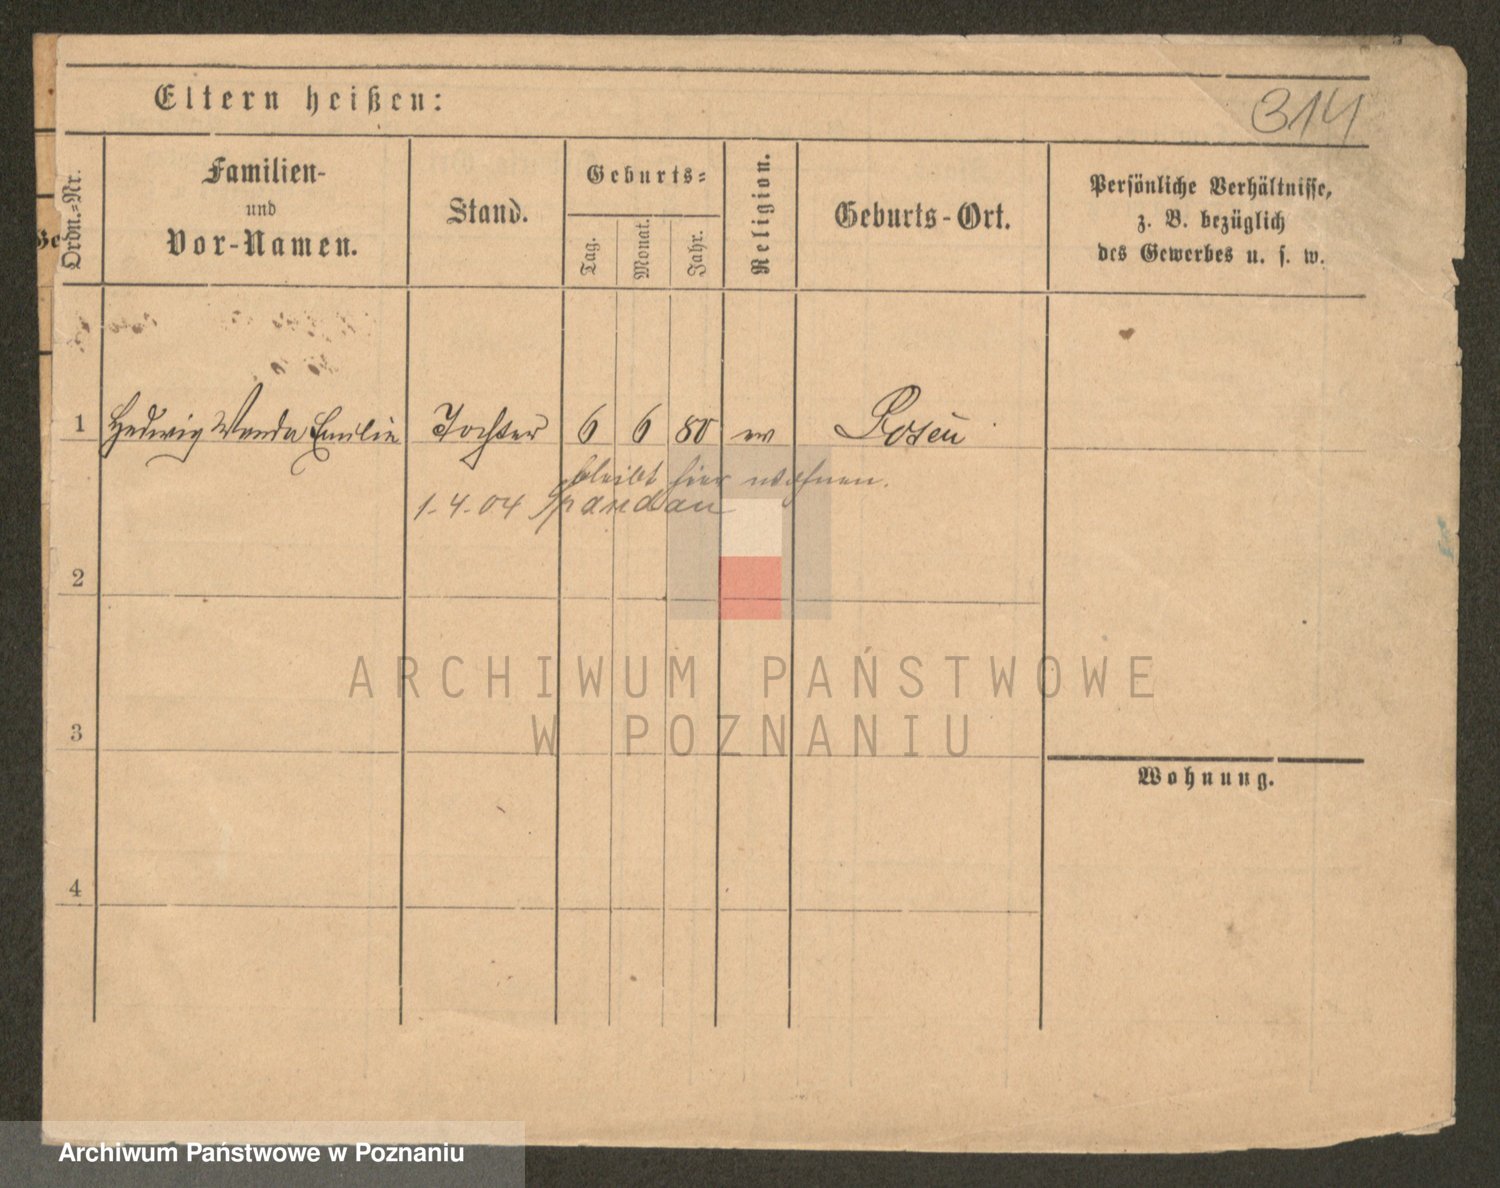 314
Eltern heißen:
Ordn.-Nr.
Familien-
und
Vor-Namen.
Stand.
Geburts-
Tag.
Monat.
Jahr.
Religion.
Geburts-Ort.
Persönliche Verhältnisse,
z. B. bezüglich
des Gewerbes u. s. w.
1 Hedwig Wanda Emilie Tochter 6 6 80 ev Posen
bleibt hier wohnen.
1-4-04 Spandau
2
3
4
Wohnung.
ARCHIWUM PAŃSTWOWE
W POZNANIU
Archiwum Państwowe w Poznaniu